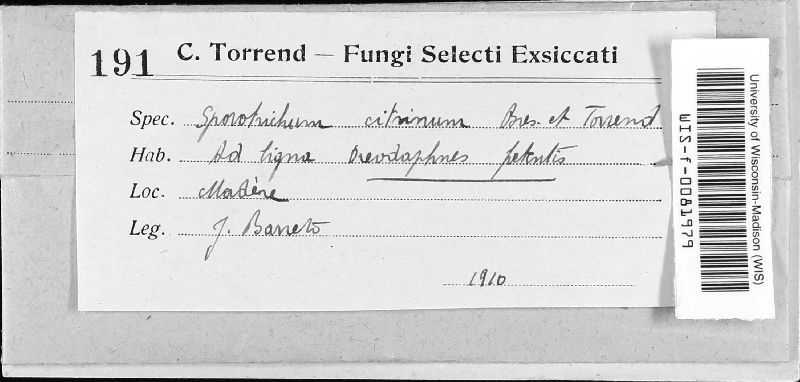 191 C. Torrend — Fungi Selecti Exsiccati
Spec. Sporotrichum citrinum Bres. et Torrend
Hab. Ad ligna Oreodaphnes
Loc. Madère
Leg. J. Barreto
1910
University of Wisconsin-Madison (WIS)
WIS-f-0081979